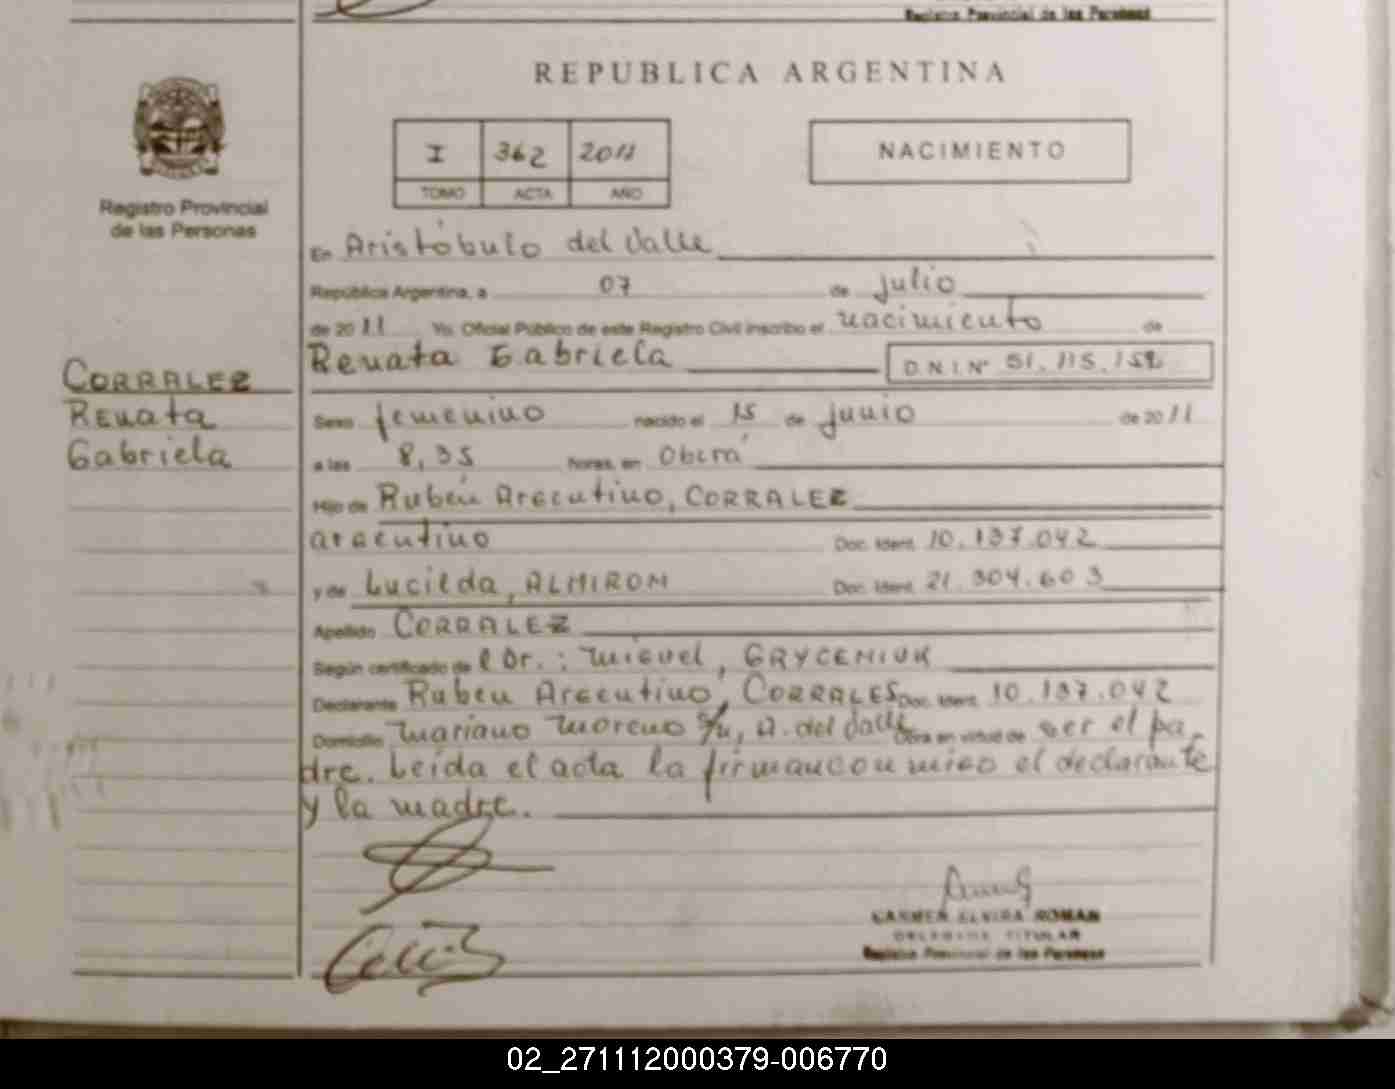 Registro Provincial de las Personas
REPUBLICA ARGENTINA
I 362 2011
TOMO ACTA AÑO
NACIMIENTO
Registro Provincial
de las Personas
En Aristóbulo del Valle
República Argentina, a 07 de julio
de 2011 Yo, Oficial Público de este Registro Civil inscribo el nacimiento de
Renata Gabriela D.N.I. Nº 51.115.152
CORRALEZ
Renata
Gabriela
Sexo femenino nacido el 15 de junio de 2011
a las 8,35 horas, en Oberá
Hijo de Rubén Argentino, CORRALEZ
argentino Doc. Ident. 10.137.042
y de Lucilda, ALMIRON Doc. Ident. 21.304.603
Apellido CORRALEZ
Según certificado de l Dr.: Miguel, GRYCENIUK
Declarante Ruben Argentino, CORRALES Doc. Ident. 10.137.042
Domicilio Mariano Moreno s/n, A. del Valle Obra en virtud de ser el pa-
dre. Leida el acta la firman con migo el declarante
y la madre.
CARMEN ELVIRA ROMAN
DELEGADA TITULAR
Registro Provincial de las Personas
02_271112000379-006770